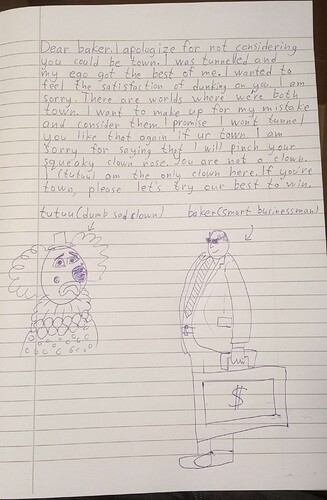 Dear baker. I apologize for not considering
you could be town. I was tunnelled and
my ego got the best of me. I wanted to
feel the satisfaction of dunking on you. I am
sorry. There are worlds where we're both
town. I want to make up for my mistake
and consider them. I promise I wont tunnel
you like that again if ur town. I am
sorry for saying that I will pinch your
squeaky clown nose. You are not a clown.
I (tutuu) am the only clown here. If you're
town, please let's try our best to win.
tutuu (dumb sad clown) baker (smart businessman)
$